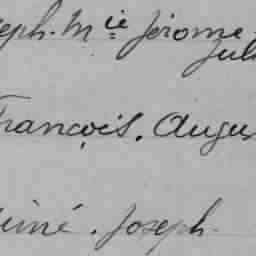 eph. Mie Jérome
Jul
François. Augu
imé. Joseph